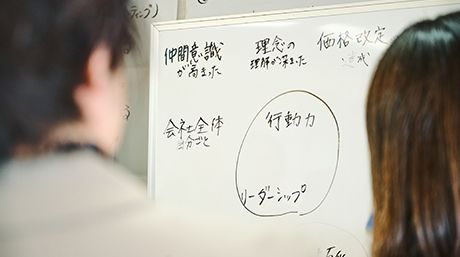 ティブ)
仲間意識
が高まった
理念の
理解が深まった
価格改定
会社全体
自分ごと
行動力
リーダーシップ